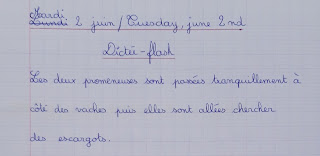 Mardi
Lundi 2 juin / Tuesday, june 2nd
Dictée-flash
Les deux promeneuses sont passées tranquillement à
côté des vaches puis elles sont allées chercher
des escargots.